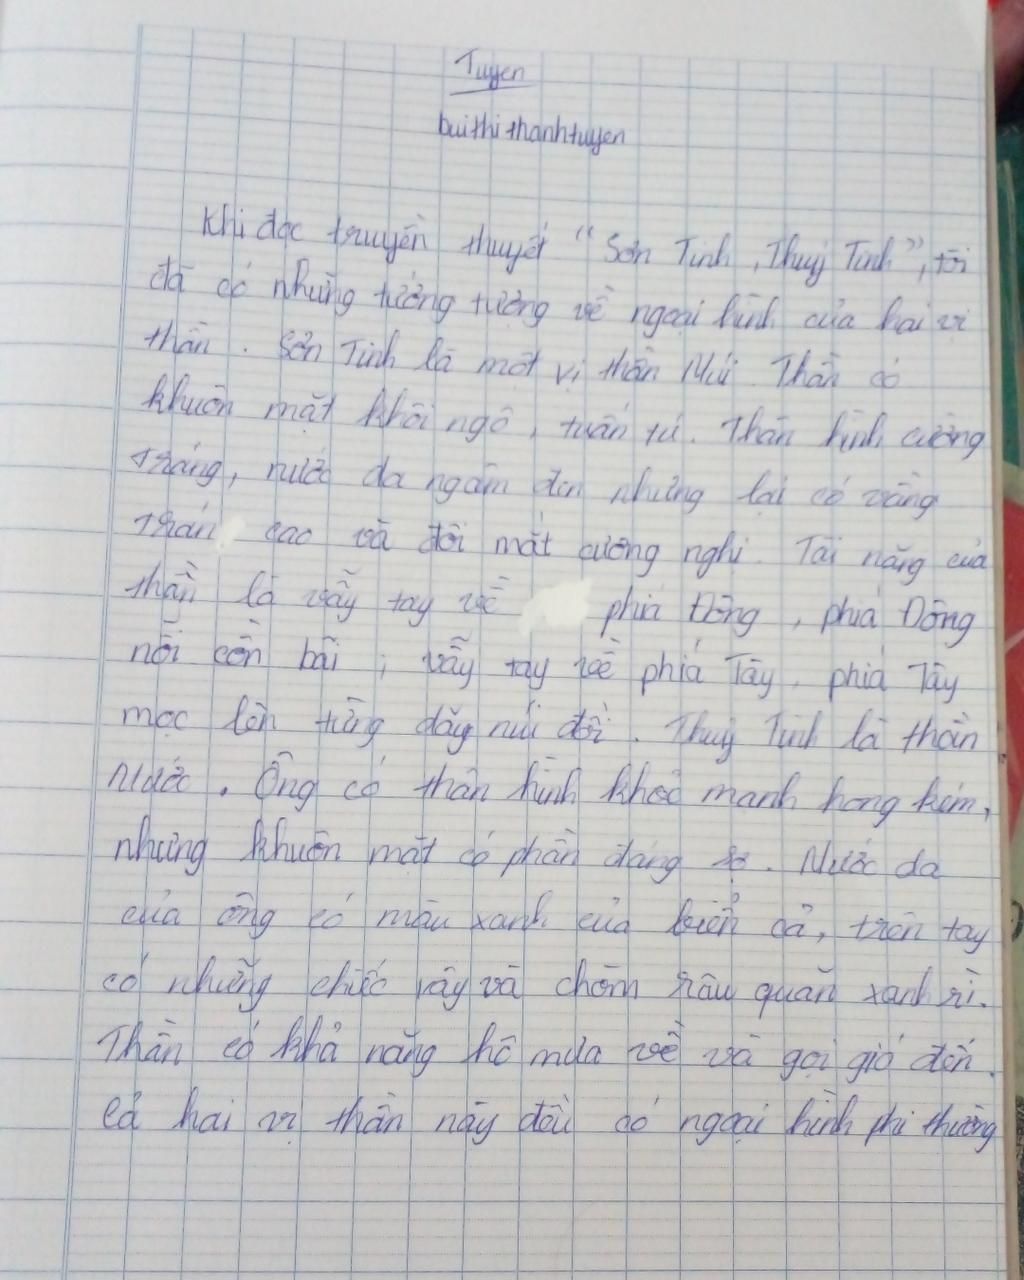 Tuyen
buithithanhtuyen
Khi đọc truyền thuyết "Sơn Tinh, Thuỷ Tinh", tôi
đã có những tưởng tượng về ngoại hình của hai vị
thần. Sơn Tinh là một vị thần Núi. Thần có
khuôn mặt khôi ngô, tuấn tú. Thân hình cường
tráng, nước da ngăm đen nhưng lại có vầng
trán cao và đôi mắt cương nghị. Tài năng của
thần là vẫy tay về phía Đông, phía Đông
nổi cồn bãi; vẫy tay về phía Tây, phía Tây
mọc lên từng dãy núi đồi. Thuỷ Tinh là thần
Nước. Ông có thân hình khoẻ mạnh hong kém,
nhưng khuôn mặt có phần đáng sợ. Nước da
của ông có màu xanh của biển cả, trên tay
có những chiếc vây và chòm râu quăn xanh rì.
Thần có khả năng hô mưa về và gọi gió đến.
Cả hai vị thần này đều có ngoại hình phi thường